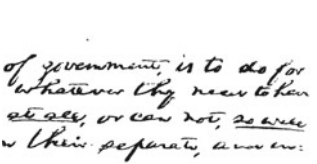 of government, is to do for
whatever they need to have
at all, or can not, so well
their separate, and in